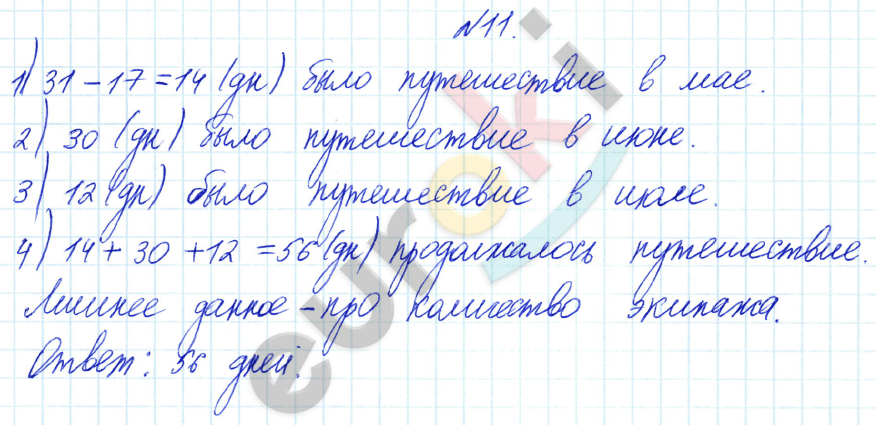 №11.
1) 31 - 17 = 14 (дн) было путешествие в мае.
2) 30 (дн) было путешествие в июне.
3) 12 (дн) было путешествие в июле.
4) 14 + 30 + 12 = 56 (дн) продолжалось путешествие.
Лишнее данное - про количество экипажа.
Ответ: 56 дней.
euroki